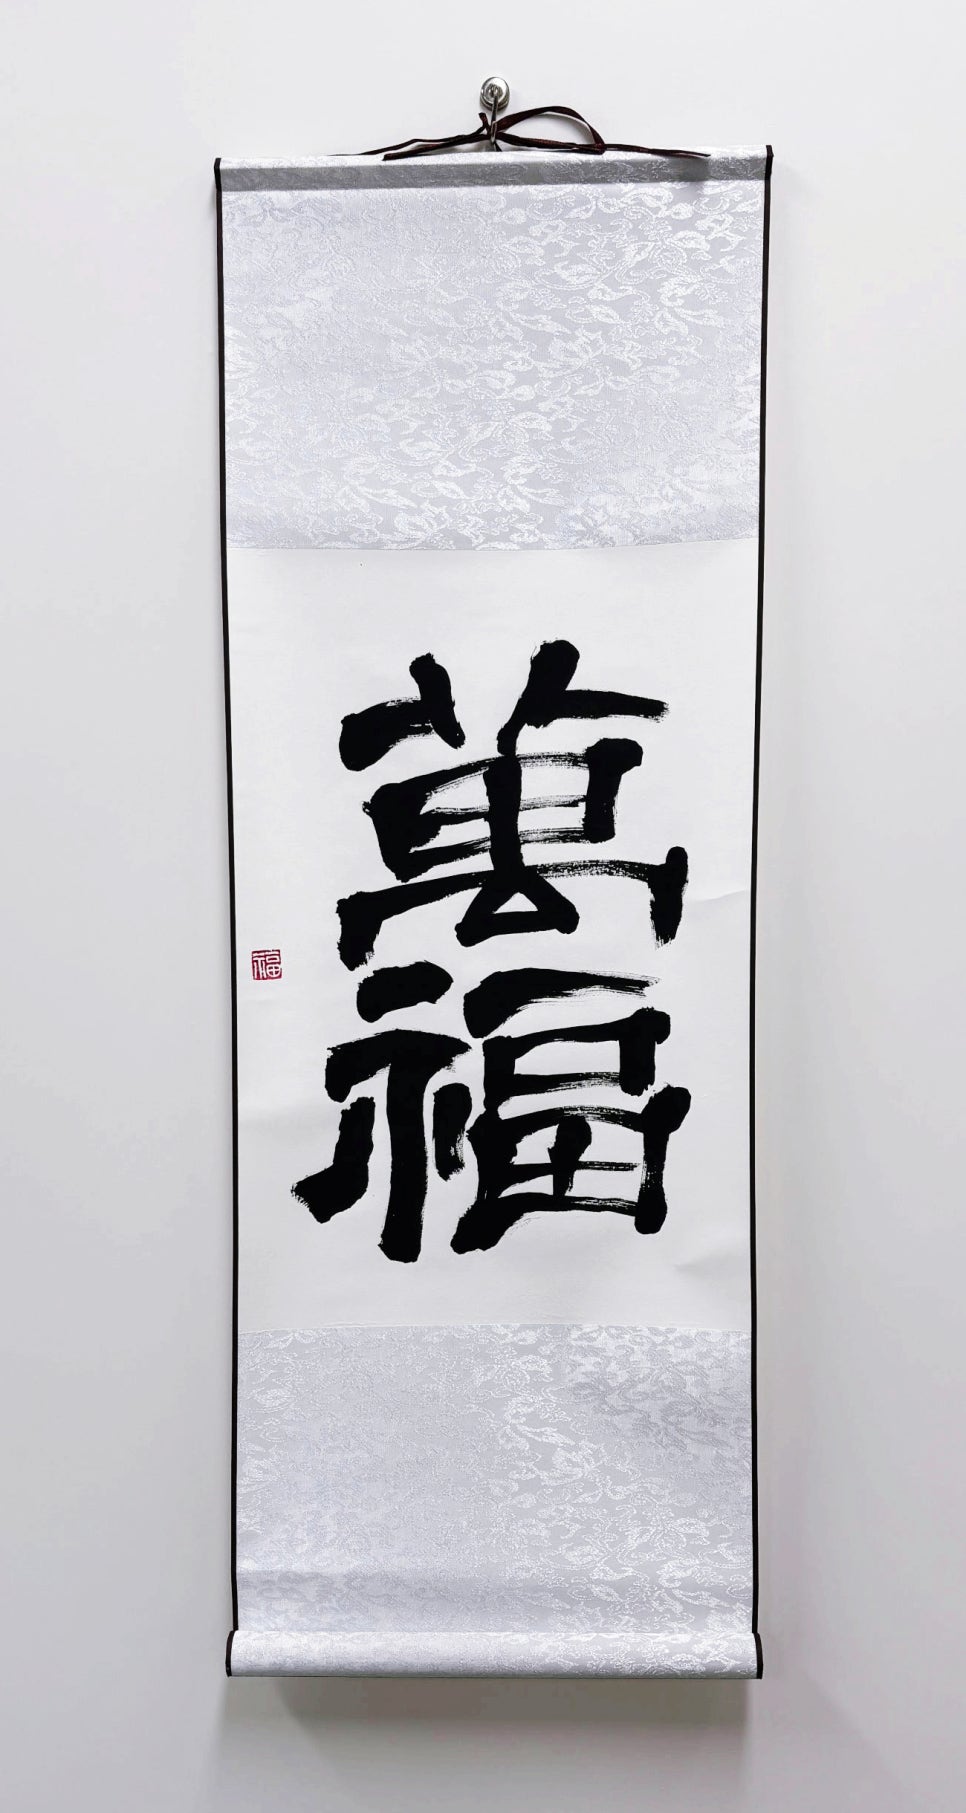 萬福
福